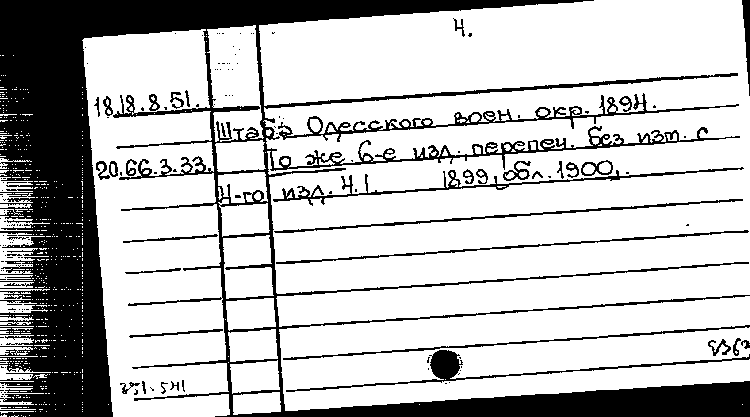 4.
18.18.8.51.
Штаба Одесского воен. окр., 1894.
20.66.3.33. То же 6-е изд., перепеч. без изм. с
4-го изд. Ч.1. 1899, обл. 1900.
351.541